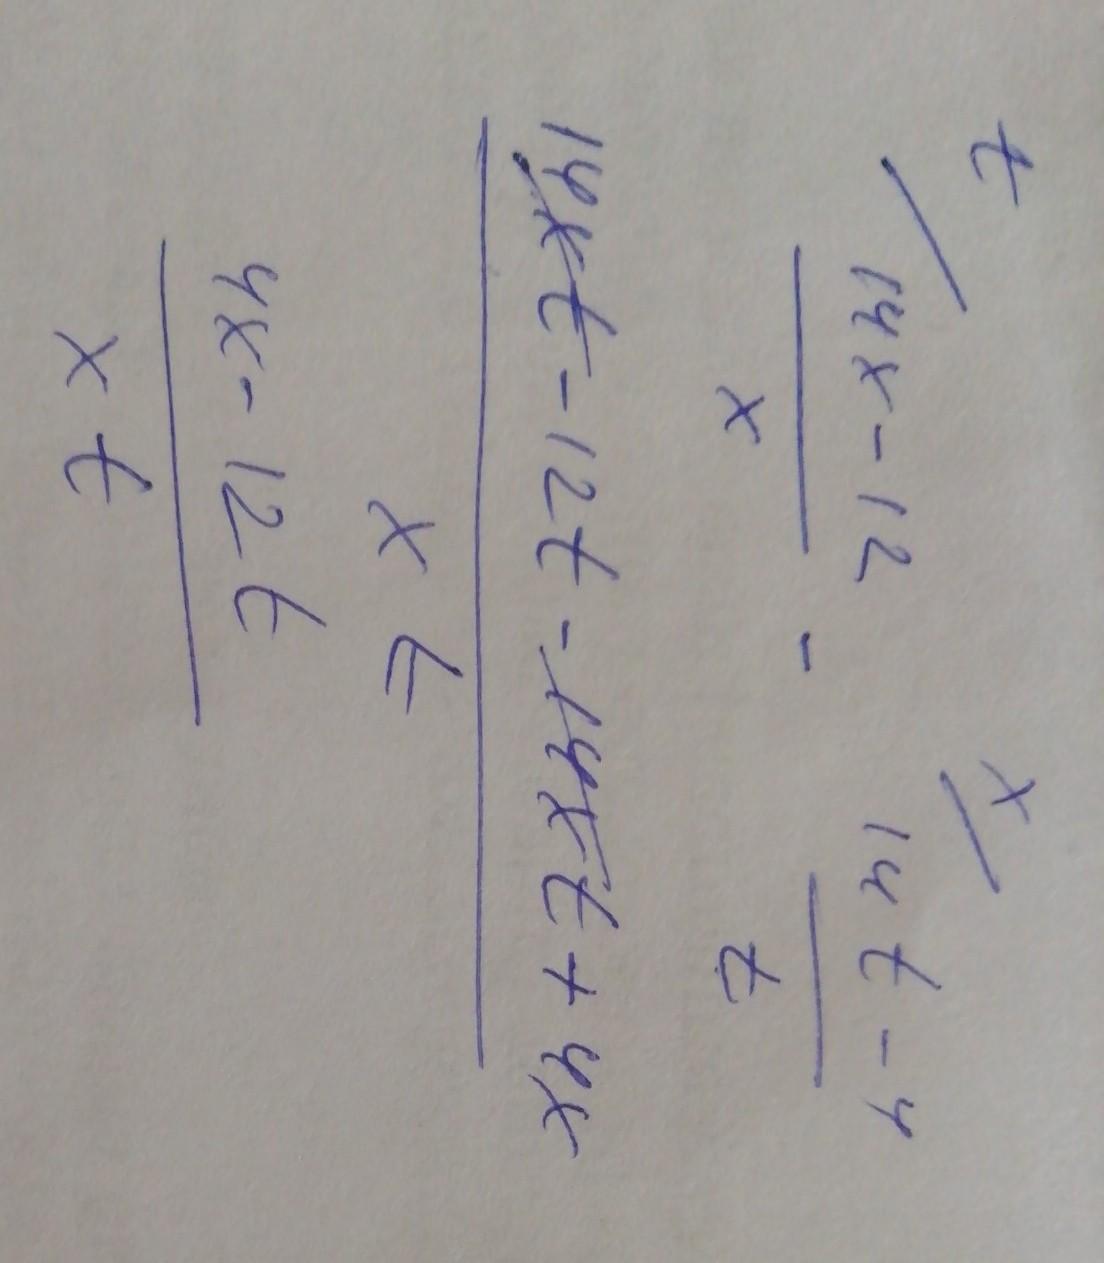 t/ x/
14x-12 - 14t-4
x t
14xt-12t-14xt+4x
xt
4x-12t
xt